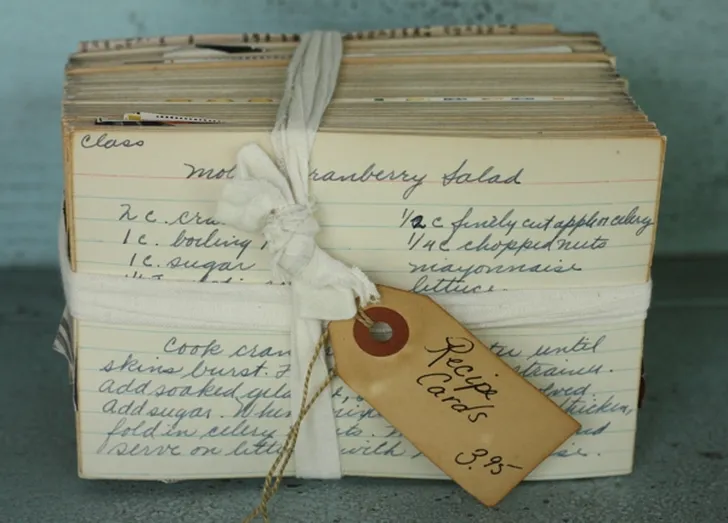 Class
Mol ranberry Salad
2 c. cra
1 c. boiling
1 c. sugar
1/2 c finely cut apple or celery
1/4 c chopped nuts
mayonnaise
lettuce.
Cook cran until
skins burst. strained.
add soaked gela
add sugar. Whe thicken,
fold in celery
serve on lett with
Recipe
Cards
3.95